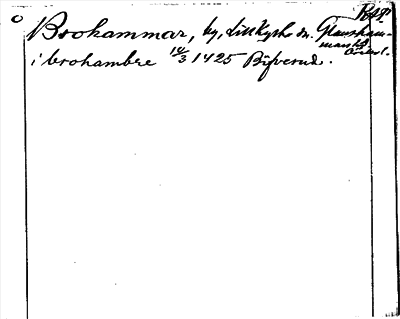 Brohammar, by, Lillkyrka sn. Glanshammars hd Örebr l.
i brohambre 14/3 1425 Bifverud.